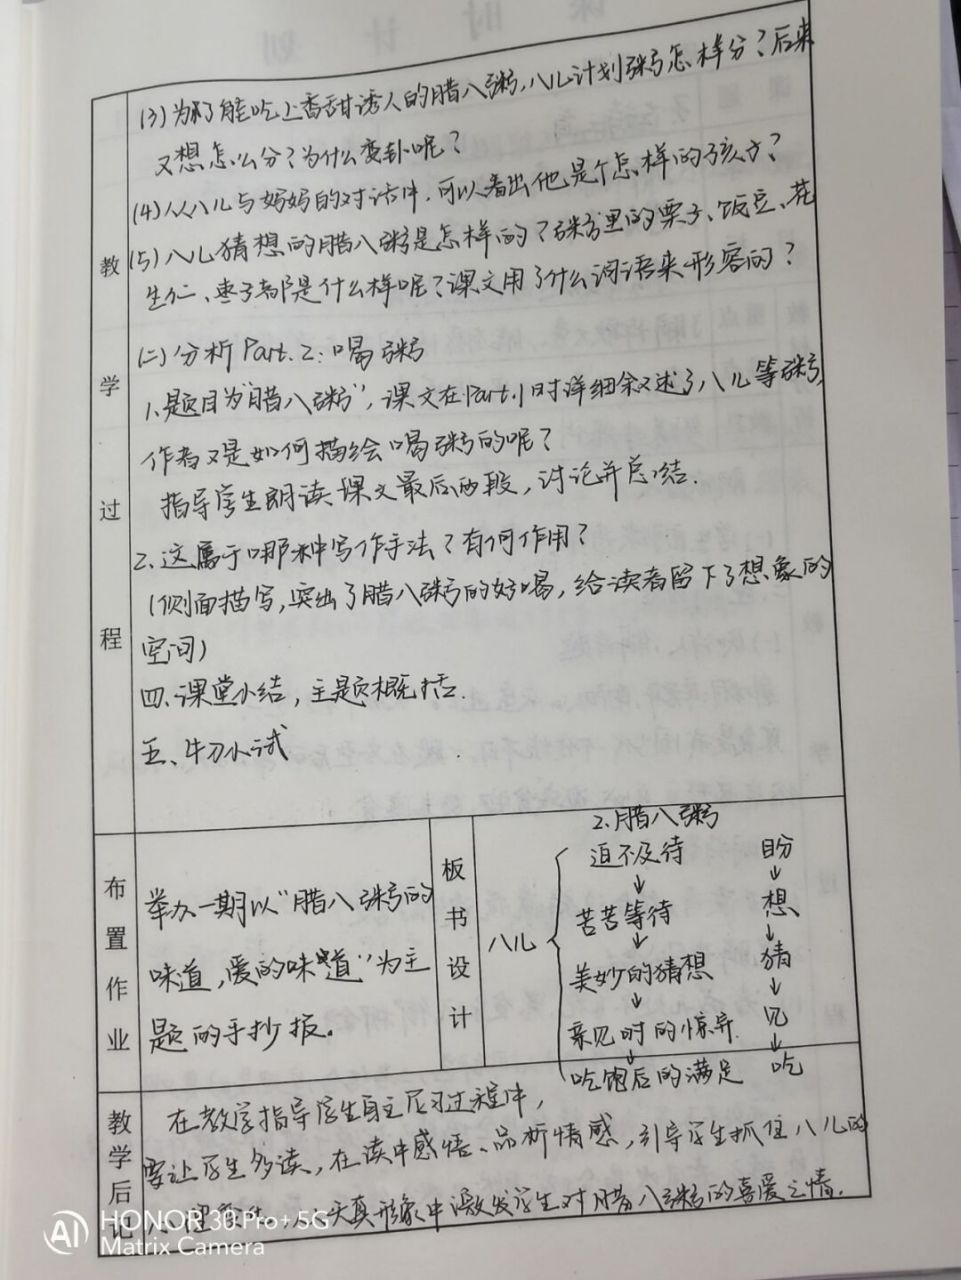 (3)为了能吃上香甜诱人的腊八粥,八儿计划粥怎样分?后来
又想怎么分?为什么变卦呢?
(4)从八儿与妈妈的对话中,可以看出他是个怎样的孩子?
(5)八儿猜想的腊八粥是怎样的?粥里的栗子、饭豆、花
生仁、枣子都是什么样呢?课文用了什么词语来形容的?
(二)分析Part.2:喝粥
1.题目为"腊八粥",课文在Part.1时详细叙述了八儿等粥,
作者又是如何描绘喝粥的呢?
指导学生朗读课文最后两段,讨论并总结.
2.这属于哪种写作手法?有何作用?
(侧面描写,突出了腊八粥的好喝,给读者留下了想象的
空间)
四、课堂小结,主题概括.
五、牛刀小试
教学过程
布置作业
举办一期以"腊八粥的
味道,爱的味道"为主
题的手抄报.
板书设计
2.腊八粥
八儿
迫不及待 盼
↓ ↓
苦苦等待 想
↓ ↓
美妙的猜想 猜
↓ ↓
亲见时的惊异 见
↓ ↓
吃饱后的满足 吃
教学后记
在教学指导学生自主学习过程中,
要让学生多读,在读中感悟、品析情感,引导学生抓住八儿的
天真形象中激发学生对腊八粥的喜爱之情.
HONOR 30 Pro+ 5G
Matrix Camera